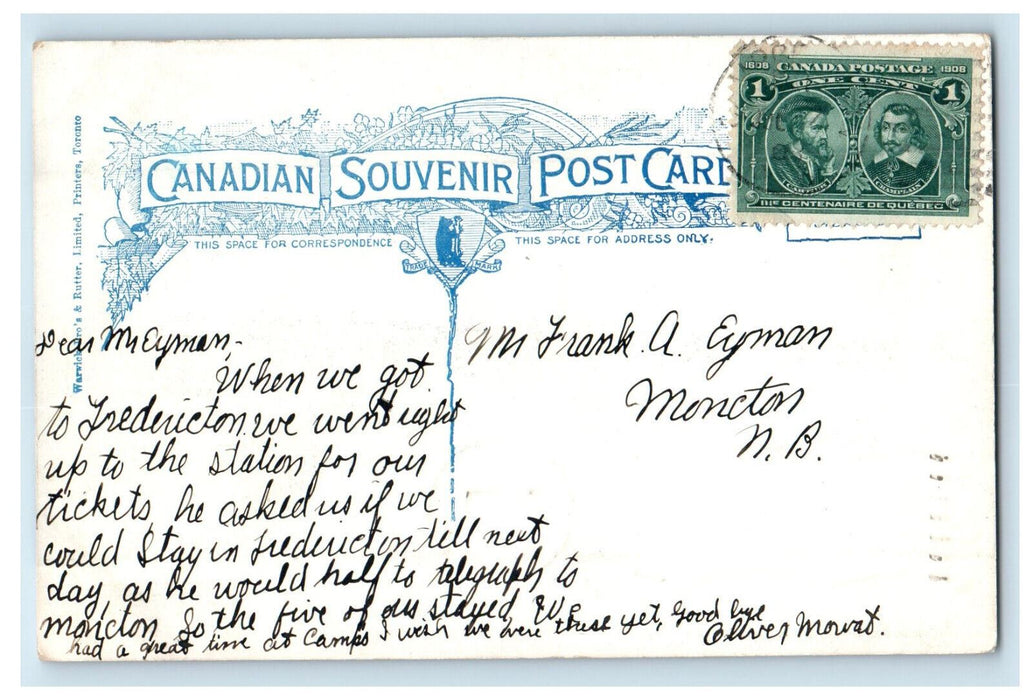 1608 CANADA POSTAGE 1908
1 ONE CENT 1
CARTIER CHAMPLAIN
IIIE CENTENAIRE DE QUÉBEC
CANADIAN SOUVENIR POST CARD
THIS SPACE FOR CORRESPONDENCE
THIS SPACE FOR ADDRESS ONLY.
TRADE MARK
& Rutter, Limited, Printers, Toronto
Dear Mr Eyman,-
When we got
to Fredericton we went right
up to the station for our
tickets, he asked us if we
could Stay in Fredericton till next
day, as he would half to telegraph to
moncton So the five of us stayed, We
had a great time at Camp I wish we were there yet, Good bye
Oliver Mowat.
Mr Frank. A. Eyman
Moncton
N. B.